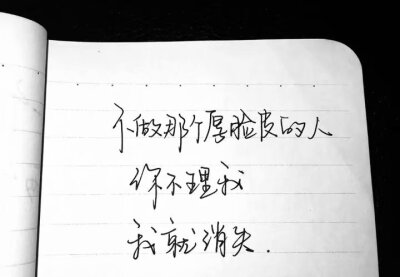 不做那个厚脸皮的人
你不理我
我就消失.